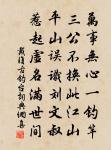 萬事無心一釣竿
三公不換此江山
平生誤識刘文叔
惹起虛名滿世間
戴復古釣台詩典網喜